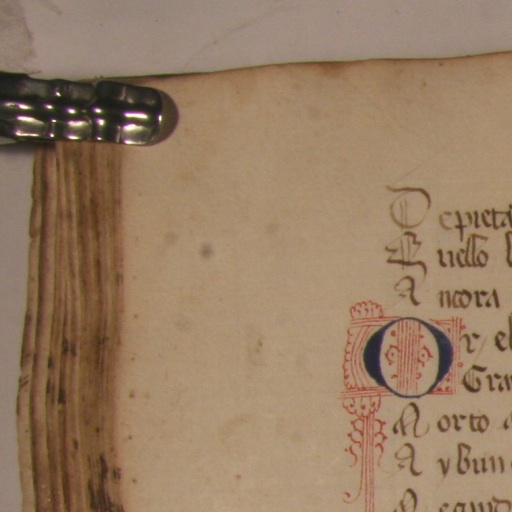 De pieta
Quello
Ancora
Or el
Gra
Morto
Ay bun